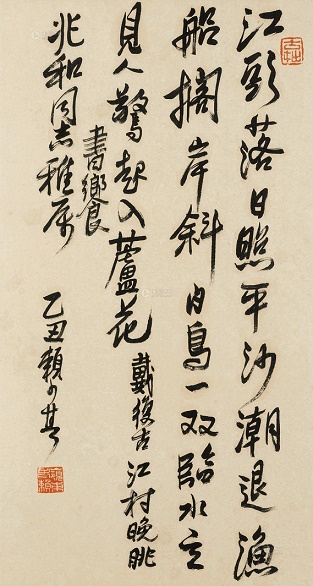 江頭落日照平沙潮退漁
船擱岸斜白鳥一双臨水立
見人驚起入蘆花 戴復古江村晚眺
書嚮食
兆和同志雅属
乙丑賴少其